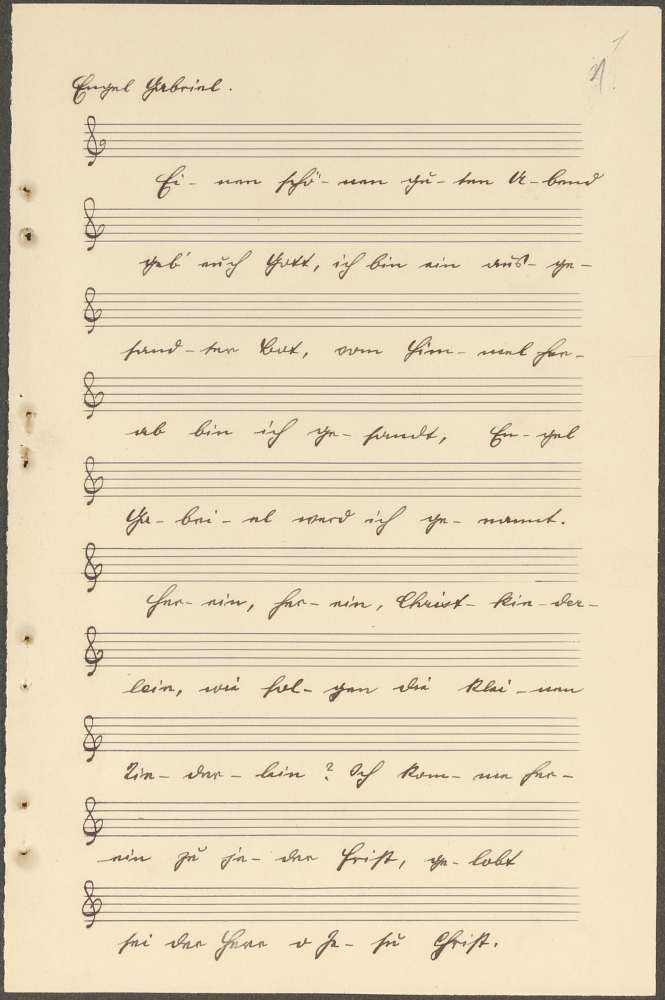 Engel Gabriel.
Ei- nen schö- nen gu- ten A- bend
geb' euch Gott, ich bin ein aus- ge-
sand- ter Bot, vom Him- mel her-
ab bin ich ge- sandt, En- gel
Ga- bri- el werd ich ge- nannt.
Her- ein, her- ein, Christ- kin- der-
lein, wie fol- gen die klei- nen
Kin- der- lein? Ich kom- me her-
ein zu je- der Frist, ge- lobt
sei der Herr o Je- su Christ.